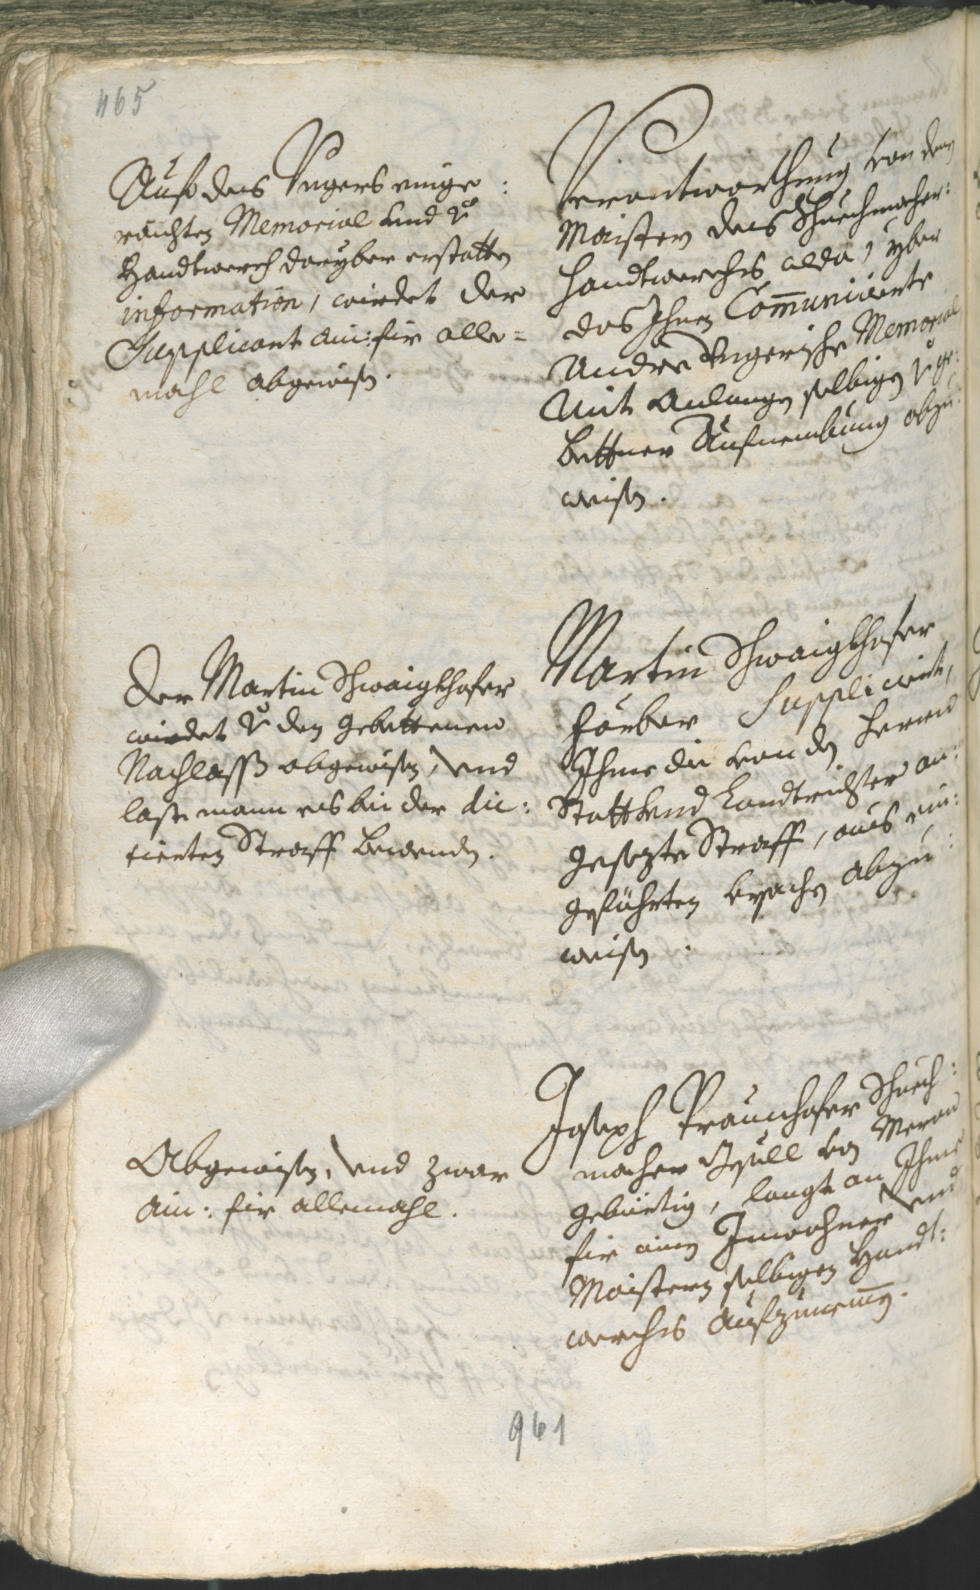 465
Auf des Ungers einge:
raichten Memorial und V
Handtwerch daryber erstatten
information, wirdet der
Supplicant ain: fir alle=
mahl abgewisen.
Verantworthung von den
Maistern des Schuechmacher:
handtwerchs alda, yber
das Ihnen Communicierte
Andree Ungerische Memorial
Mit Anlangen selbigen V ge:
bettner Aufnembung abzu:
weisen.
Der Martin Schwaigkhofer
wirdet V den gebettenen
Nachlasß abgewisen, und
lasse mann es bei der dic:
tierten Straff bewenden.
Martin Schwaigkhofer
Färber Supplicierte,
Ihme die von den Herrn
Statt und Landtrichter an:
gesezte Straff, aus ein:
geführten Vrsachen abzu:
weisen:
Abgewisen, und zwar
ain: fir allemahl.
Joseph Praunhofer Schuech:
macher Gsöll von Meran
gebürtig, langt an Ihme
fir ainen Inwohner und
Maistern selbigen Handt:
werchs aufzunemen.
961